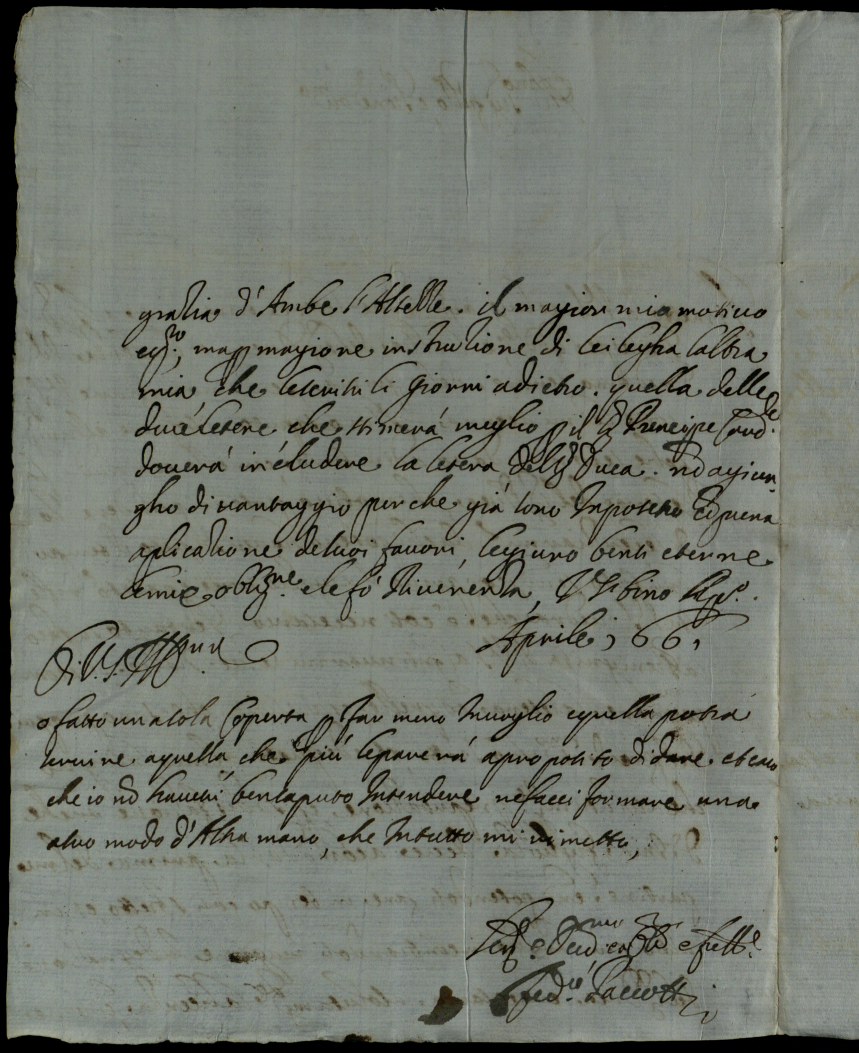 gratia d'Ambe l'Altezze. il magior mio motivo
e q.to, ma p magiore instrutione di lei legha l'altra
mia che le scrissi li giorni adietro. quella delle
due lettere che stimerá meglio p il S.r Prencipe Card.le
doverá includere la lettera del S.r Duca. nõ agiun
gho di vantaggio perche giá sono In possesso
aplicatione de suoi favori, le giuro bensi eterne
le mie oblig.ne e le fó Riverenza, Urbino
Aprile 1661
Di V.S. Ill.ma
o fatto una sola coperta p far meno Inuoglio e quella potrá
servire a quella che piú le parerá a proposito di dare. et caso
che io nõ havessi ben saputo Intendere ne facci formare una
a suo modo d'Altra mano, che In tutto mi rimetto,
Fed.co Paccotti